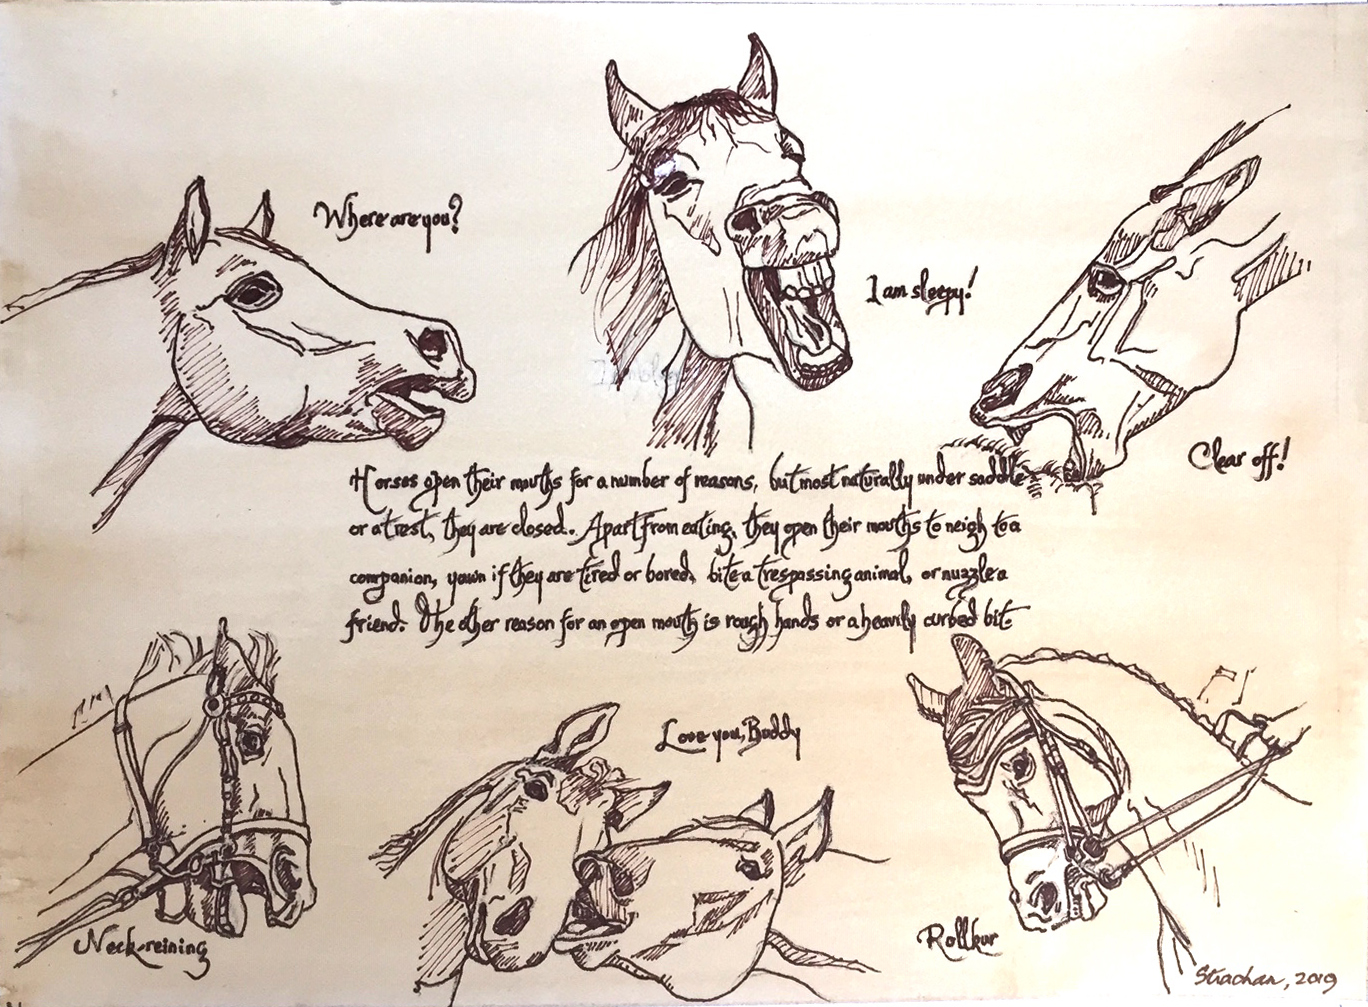 Where are you?
I am sleepy!
Clear off!
Horses open their mouths for a number of reasons, but most naturally under saddle
or at rest, they are closed. Apart from eating, they open their mouths to neigh to a
companion, yawn if they are tired or bored, bite a trespassing animal, or nuzzle a
friend. The other reason for an open mouth is rough hands or a heavily curbed bit.
Love you, Buddy
Neck-reining
Rollkur
Strachan, 2019